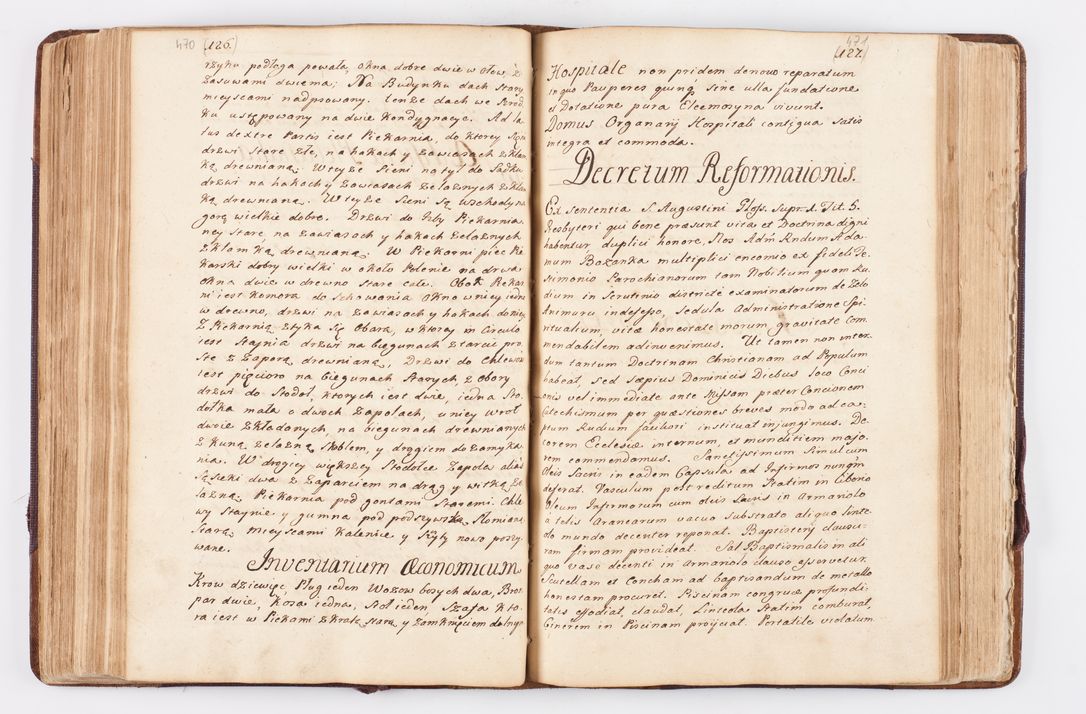 470 (126.)
rzyku podłoga powała, okna dobre dwie w ołow z
zasuwami dwiema; Na Budynku dach stary
mieyscami nadpsowany. tenże dach we srod
ku ustępowany na dwie kondygnacye. Ad la
tus dextre Partis iest Piekarnia, do ktorey
drzwi stare złe, na hakach y zawiasach z klam
ką drewnianą. W teyże Sieni na tył do Sadku
drzwi na hakach y zawiasach żelaznych z klam
ką drewnianą. W teyże Sieni są wschody na
gorę wielkie dobre. Drzwi do Izby Piekarnia
ney stare na zawiasach y hakach żelaznych
z klamką drewnianą. W Piekarni piec Pie
karski dobry wielki w około Polenie na drwa
okna dwie w drewno stare całe. Obok Piekar
ni iest komora do schowania okno w niey iedno
w drewno, drzwi na zawiasach y hakach
Z Piekarnią styka się Obara, w ktorey in Circulo
iest staynia drzwi na biegunach z tarcic pro
ste z zaporą drewnianą, Drzwi do Chlewow
iest pięcioro na biegunach starych, z obory
drzwi do stodoł, ktorych iest dwie, iedna Sto
dołka mała o dwoch zapolach, u niey wrot
dwoie składanych, na biegunach drewnianych
z kuną żelazną skoblem, y drągiem do zamyka
nia. W drogiey większey stodolce zapola alias
Sąsieki dwa z zaparciem na drąg y witką że
lazną. Piekarnia pod gontami staremi. Chle
wy staynie y gumna pod poszywską słomianą
starą mieyscami kalenice y szyty nowo poszy
wane.
Inventarium Œconomicum
Krow dziewięć, Pług ieden Wozow bosych dwa, Bron
par dwie, kosa iedna, stoł ieden, szafa kto
ra iest w Piekarni z kratą starą y zamknięciem do
471
(127.)
Hospitale non pridem denovo reparatum
in quo Pauperes quinq sine ulla fundatione
et Dotatione pura Eleemosyna vivunt.
Domus Organarij Hospitali contigua satis
integra et commoda.
Decretum Reformationis.
Ex sententia S. Augustini Gloss. supr. 1. Tit. 5.
Presbyteri qui bene præsunt vitæ et Doctrina digni
habentur duplici honore, Nos Adm Rndum Ada
mum Bazanka multiplici encomio ex fideli Te
stimonio Parochianorum tam Nobilium quam Ru
dium in Scrutinio districté examinatorum de Zelo
Animarū indefesso, sedula Administratione Spi
ritualium, vitæ honestate morum gravitate com
mendabilem adinvenimus. Ut tamen non inter
dum tantum Doctrinam Christianam ad Populum
habeat, sed sæpius Dominicis Diebus loco Conci
onis vel immediate ante Missam præter Concionem
Catechismum per quæstiones breves modo ad ca
ptum Rudium faciliori instituat injungimus. De
corem Ecclesiæ internum, et munditiem majo
rem commendamus. Sanctissimum simul cum
Oleis Sacris in eadem Capsula ad Infirmos nunqm
deferat. Vasculum post reditum statim in Ciborio
Oleum Infirmorum cum oleis Sacris in Armariolo
a telis Aranearum vacuo substrato aliquo linte
olo mundo decenter reponat. Baptisterij clausu
ram firmam provideat. Sal Baptismalis in ali
quo vase decenti in Armariolo clauso asservetur.
Scutellam et Concham ad baptisandum de metallo
honestam procuret. Piscinam congruæ profundi
tatis effodiat, claudat, Linteola statim comburat,
Cinerem in Piscinam projiciat. Portatile violatum